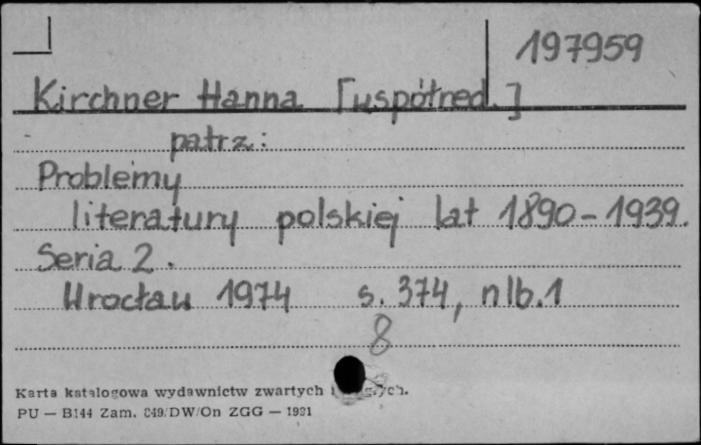 197959
Kirchner Hanna [współred.]
patrz:
Problemy
literatury polskiej lat 1890-1939.
Seria 2.
Wrocław 1974 s. 374, nlb.1
8
Karta katalogowa wydawnictw zwartych
PU — B144 Zam. 849/DW/On ZGG — 1991